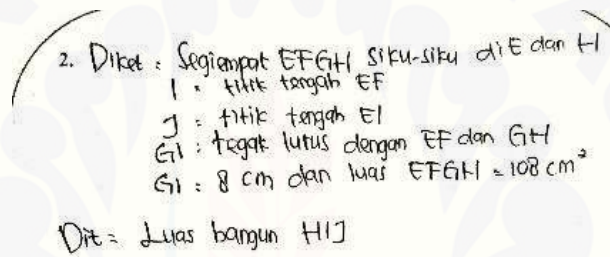 2. Diket : Segiempat EFGH siku-siku di E dan H
I : titik tengah EF
J : titik tengah EI
GI : tegak lutus dengan EF dan GH
GI : 8 cm dan luas EFGH = 108 cm²
Dit = Luas bangun HIJ